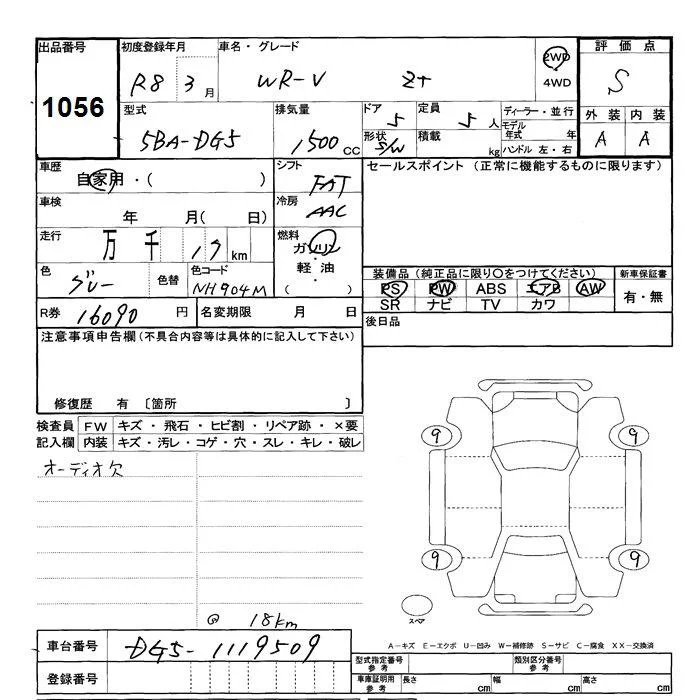 出品番号 初度登録年月 車名・グレード 2WD 評価点
1056 R8 3月 WR-V Z+ 4WD S
型式 排気量 ドア 定員 ディーラー・並行 外装 内装
5BA-DG5 1500cc 5 5人 モデル年式 年 A A
形状 S/W 積載 kg ハンドル 左・右
車歴 シフト セールスポイント (正常に機能するものに限ります)
自家用・( ) FAT
車検 冷房
年 月( 日) AAC
走行 燃料
万 千 17 km ガソリン
軽油
( )
色 グレー 色替 色コード NH904M
装備品 (純正品に限り○をつけてください) 新車保証書
PS PW ABS エアB AW 有・無
SR ナビ TV カワ
R券 16090円 名変期限 月 日 後日品
注意事項申告欄 (不具合内容等は具体的に記入して下さい)
修復歴 有 〔箇所 〕
検査員 FW キズ・飛石・ヒビ割・リペア跡・×要
記入欄 内装 キズ・汚レ・コゲ・穴・スレ・キレ・破レ
オーディオ欠
9 9
9 9
スペア
@ 18km
A-キズ E-エクボ U-凹み W-補修跡 S-サビ C-腐食 XX-交換済
車台番号 DG5-1119509
登録番号
型式指定番号 参考 類別区分番号 参考
車庫証明用 参考 長さ cm 幅 cm 高さ cm